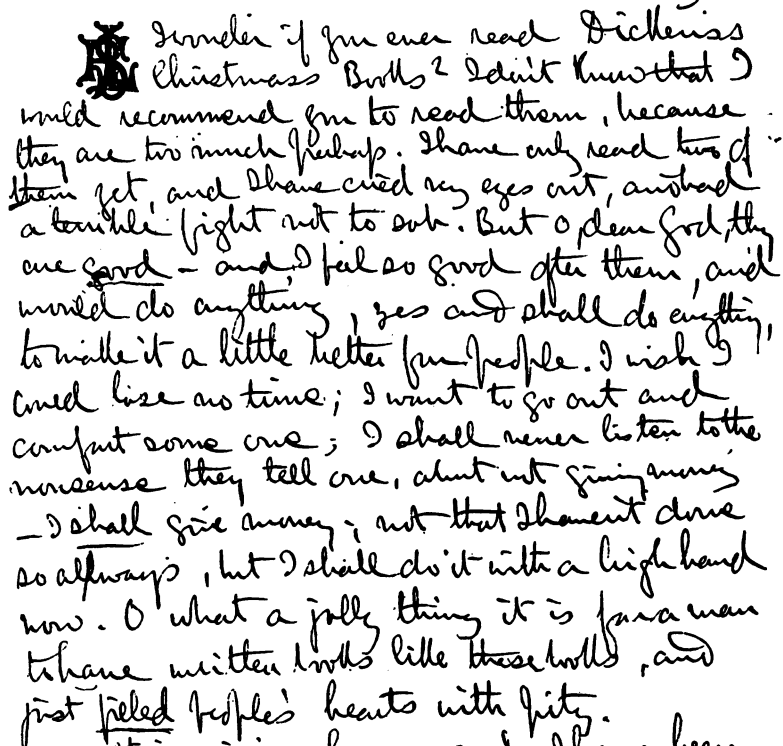 I wonder if you ever read Dickens's
Christmass Books? I don't know that I
would recommend you to read them, because
they are too much perhaps. I have only read two of
them yet, and I have cried my eyes out, and had
a terrible fight not to sob. But O, dear God, they
are good - and I feel so good after them, and
would do anything, yes and shall do anything,
to make it a little better for people. I wish I
could lose no time; I want to go out and
comfort some one; I shall never listen to the
nonsense they tell one, about not giving money
- I shall give money; not that I haven't done
so allways, but I shall do it with a high hand
now. O what a jolly thing it is for a man
to have written books like these books, and
just filled people's hearts with pity.